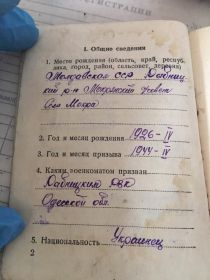 РЕГИСТРАЦИИ
1. Общие сведения
1. Место рождения (область, край, республика, город, район, сельсовет, деревня)
Молдавская ССР
р-н
Село Мокра
2. Год и месяц рождения 1926 - IV
3. Год и месяц призыва 1944 - IV
4. Каким военкоматом призван
РВК
Одесской обл.
5. Национальность Украинец
2